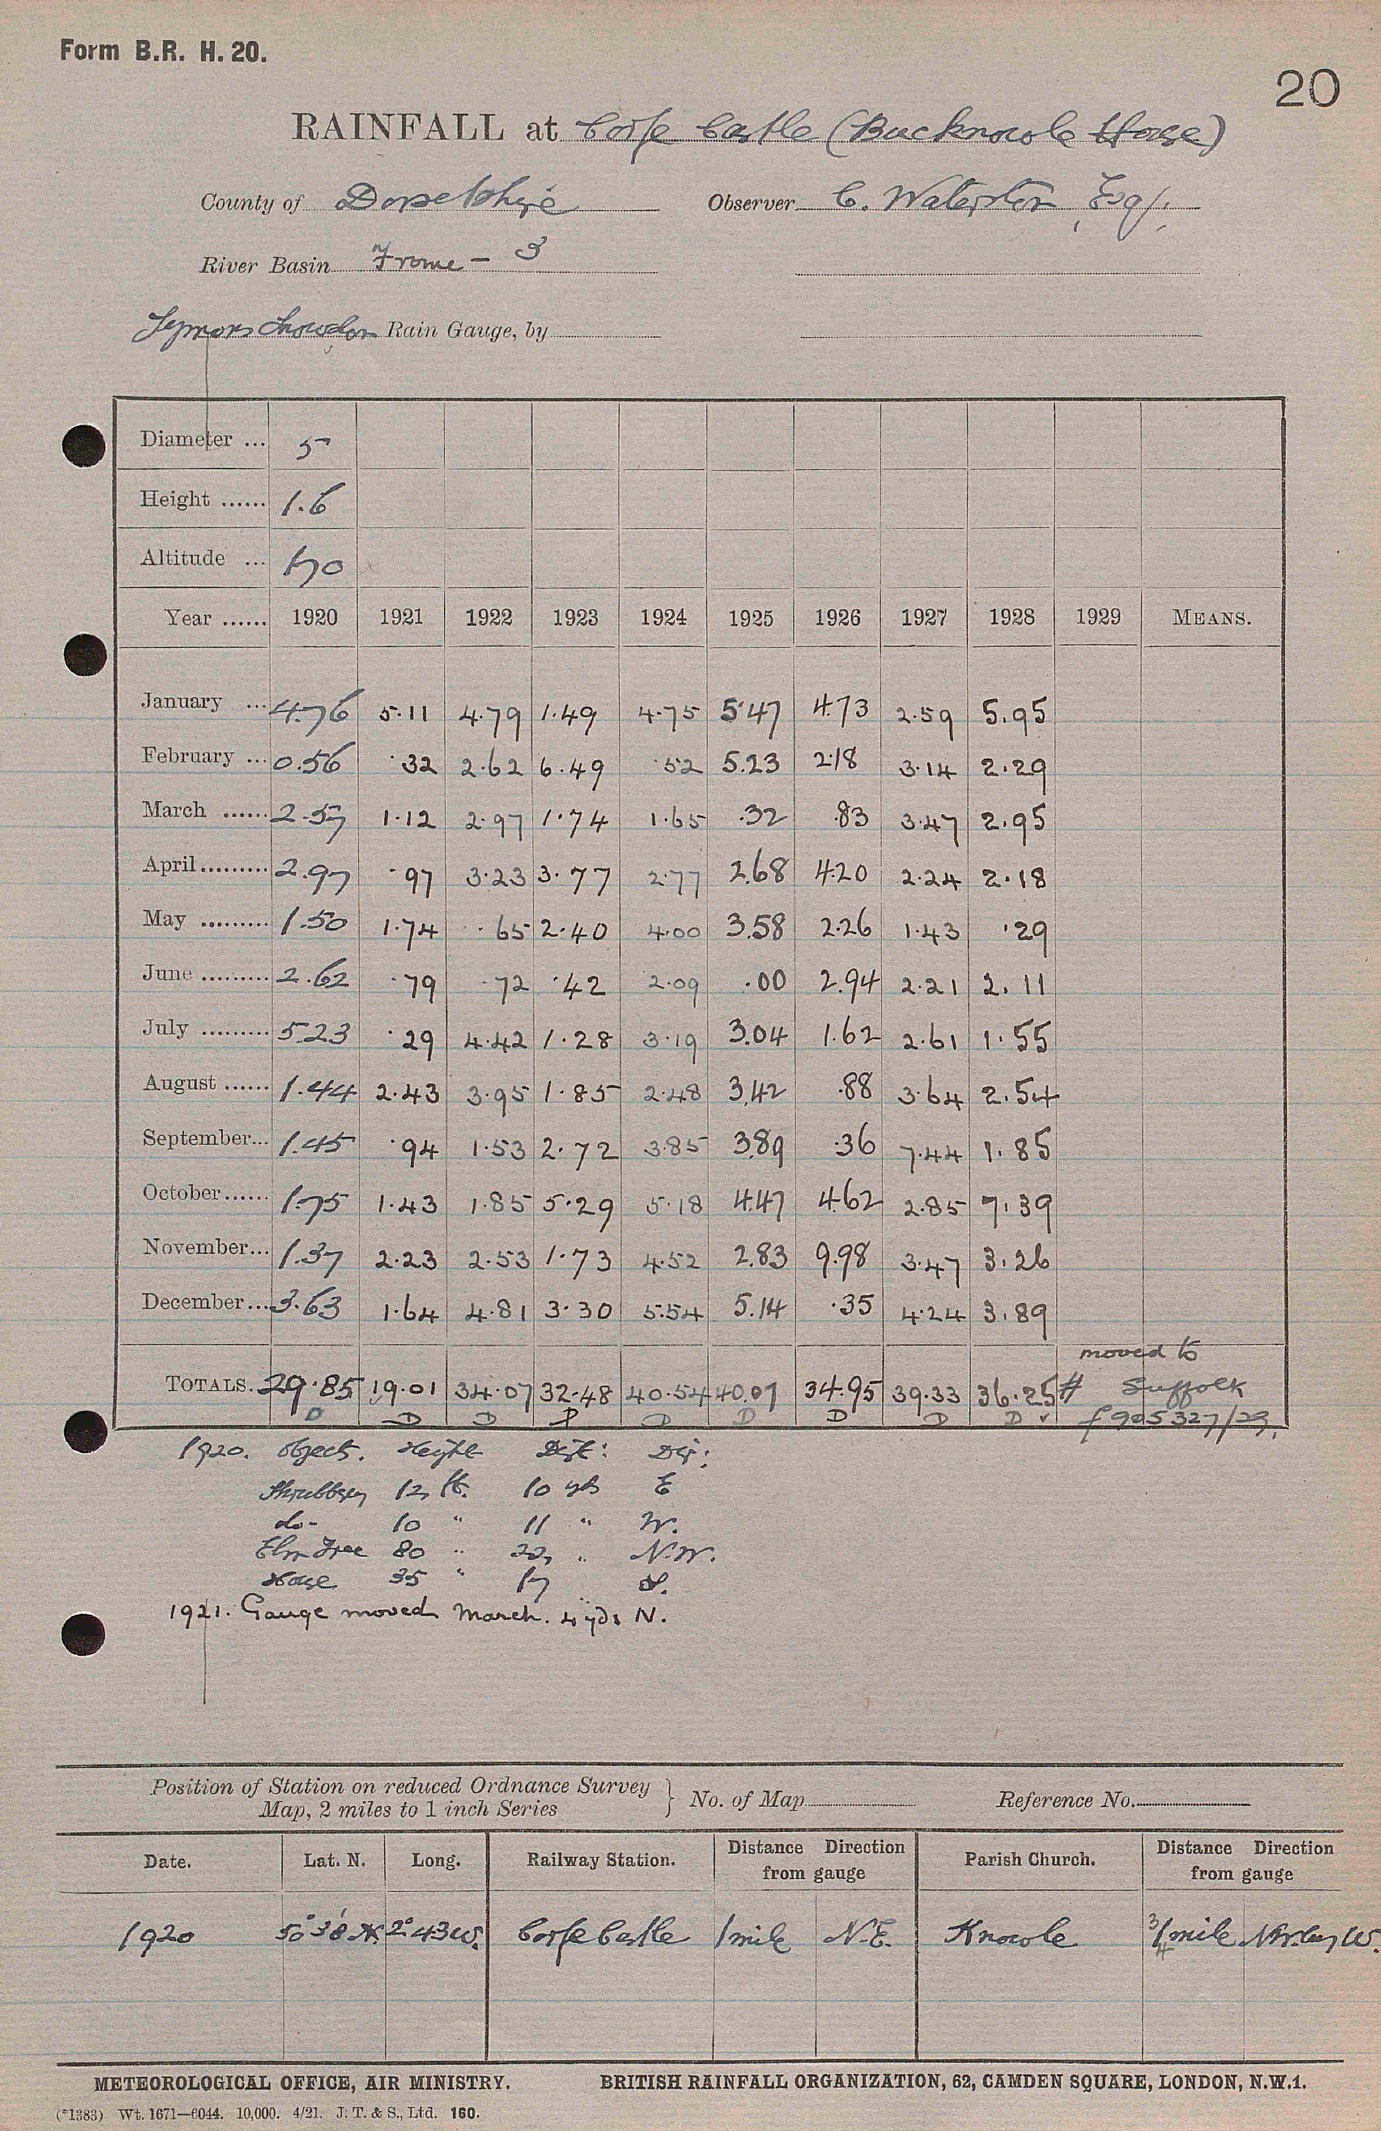 Form B.R. H. 20.
20
RAINFALL at Corfe Castle (Bucknowle House)
County of Dorsetshire Observer C. Waterston, Esq.
River Basin Frome - 3
Symons Snowdon Rain Gauge, by
Diameter ... 5
Height ...... 1.6
Altitude ... 170
Year ...... 1920 1921 1922 1923 1924 1925 1926 1927 1928 1929 MEANS.
January ... 4.76 5.11 4.79 1.49 4.75 5.47 4.73 2.59 5.95
February ... 0.56 .32 2.62 6.49 .52 5.23 2.18 3.14 2.29
March ...... 2.57 1.12 2.97 1.74 1.65 .32 .83 3.47 2.95
April ......... 2.97 .97 3.23 3.77 2.77 2.68 4.20 2.24 2.18
May ......... 1.50 1.74 .65 2.40 4.00 3.58 2.26 1.43 .29
June ......... 2.62 .79 .72 .42 2.09 .00 2.94 2.21 2.11
July ......... 5.23 .29 4.42 1.28 3.19 3.04 1.62 2.61 1.55
August ...... 1.44 2.43 3.95 1.85 2.48 3.42 .88 3.64 2.54
September... 1.45 .94 1.53 2.72 3.85 3.89 .36 7.44 1.85
October...... 1.75 1.43 1.85 5.29 5.18 4.47 4.62 2.85 7.39
November... 1.37 2.23 2.53 1.73 4.52 2.83 9.98 3.47 3.26
December... 3.63 1.64 4.81 3.30 5.54 5.14 .35 4.24 3.89
moved to
TOTALS. 29.85 19.01 34.07 32.48 40.54 40.07 34.95 39.33 36.25 # Suffolk
D D D D D D D D D ✓ f 905327/29.
1920. Objects. Height Dist: Dir:
Shrubbery 12 ft. 10 yds E
do- 10 " 11 " W.
Elm Tree 80 " 22 " N.W.
House 35 " 17 S.
1921. Gauge moved March. 4 yds N.
Position of Station on reduced Ordnance Survey
Map, 2 miles to 1 inch Series } No. of Map Reference No.
Date. Lat. N. Long. Railway Station. Distance Direction from gauge Parish Church. Distance Direction from gauge
1920 50° 38' N. 2° 43 W. Corfe Castle 1 mile N.E. Knowle 3/4 mile N.W. by W.
METEOROLOGICAL OFFICE, AIR MINISTRY. BRITISH RAINFALL ORGANIZATION, 62, CAMDEN SQUARE, LONDON, N.W.1.
(*1383) Wt. 1671—6044. 10,000. 4/21. J. T. & S., Ltd. 160.